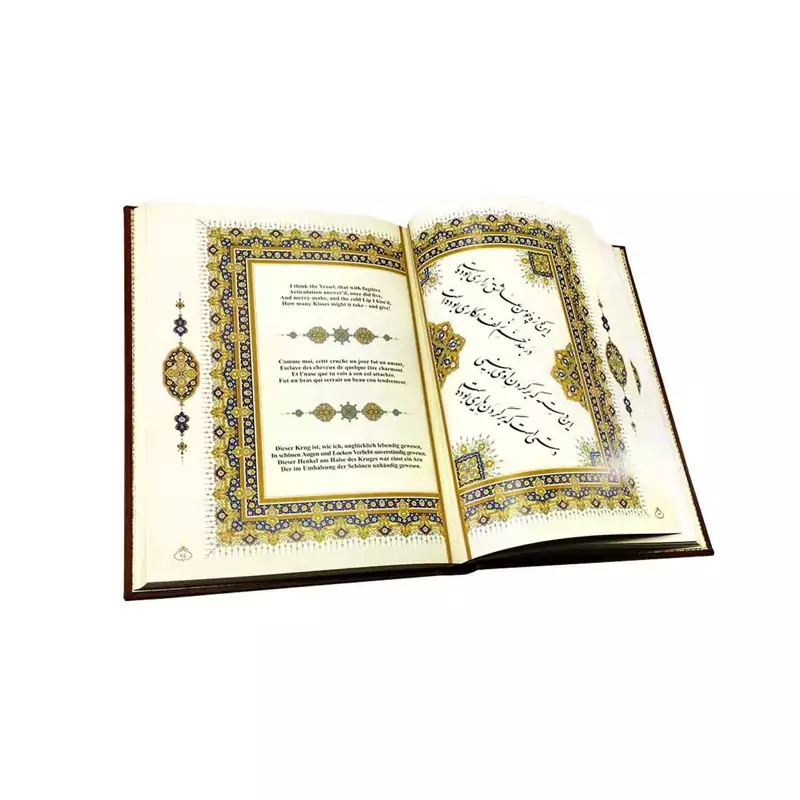 I think the Vessel, that with fugitive
Articulation answer'd, once did live,
And merry-make, and the cold Lip I kiss'd,
How many Kisses might it take - and give!
Comme moi, cette cruche un jour fut un amant,
Esclave des cheveux de quelque être charmant.
Et l'anse que tu vois à son col attachée.
Fut un bras qui serrait un beau cou tendrement.
Dieser Krug ist, wie ich, unglücklich lebendig gewesen,
In schönen Augen und Locken Verliebt unverständig gewesen.
Dieser Henkel am Halse des Kruges war einst ein Arm
Der im Umhalsung der Schönen unhändig gewesen.
این کوزه چو من عاشق زاری بوده است
در بند سر زلف نگاری بوده است
این دسته که بر گردن او می‌بینی
دستی است که بر گردن یاری بوده است